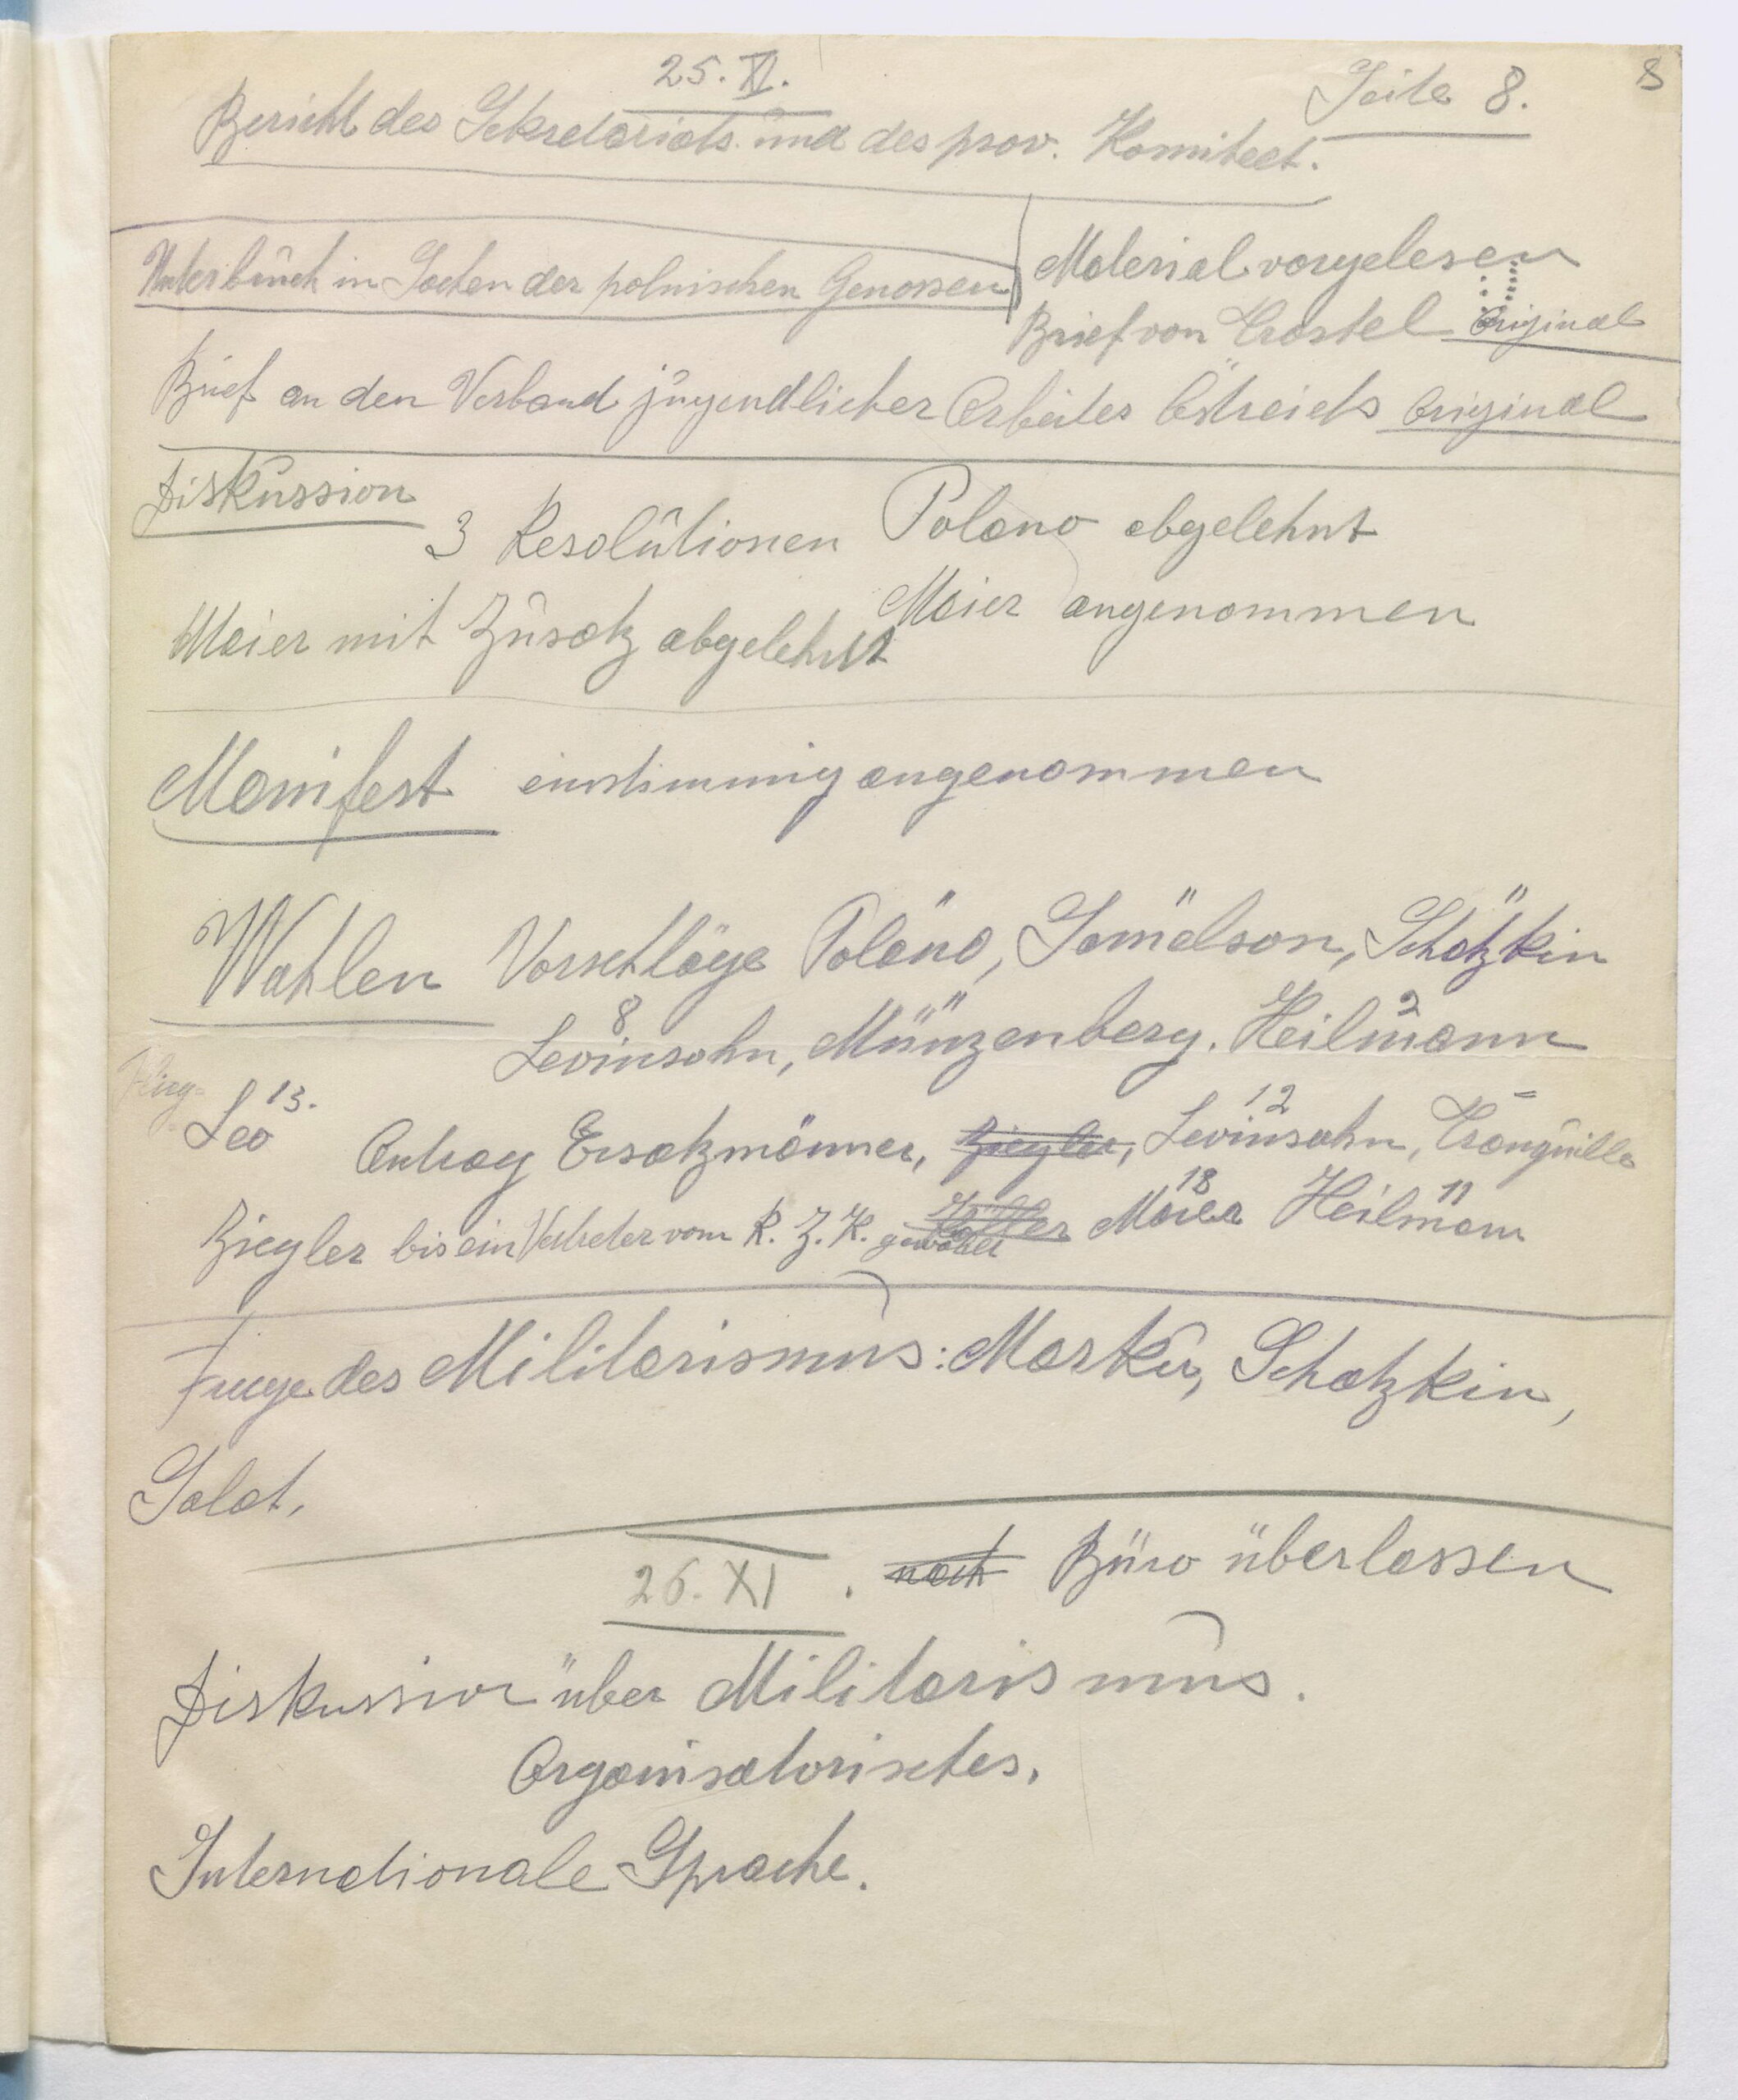 8
25. XI.
Seite 8.
Bericht des Sekretariats und des prov. Komiteet.
Unterbruch in Sachen der polnischen Genossen
Material vorgelesen
Brief von Crastel Original
Brief an den Verband jugendlicher Arbeiter Östreichs Original
Diskussion
3 Resolutionen Polano abgelehnt
Maier angenommen
Maier mit Zusatz abgelehnt
Manifest einstimmig angenommen
Wahlen Vorschläge Polano, Samuelson, Schatzkin
8 2
Levinsohn, Münzenberg. Heilmann
Flieg-
Leo 13.
12
Antrag Ersatzmänner, Ziegler, Levinsohn, Tranquilla
18 11
Ziegler bis ein Vertreter vom R. Z. K. gewählt Maier Heilmann
Frage des Militarismus: Marku, Schatzkin,
Salat,
26. XI. nach Büro überlassen
Diskussion über Militarismus.
Organisatorisches.
Internationale Sprache.